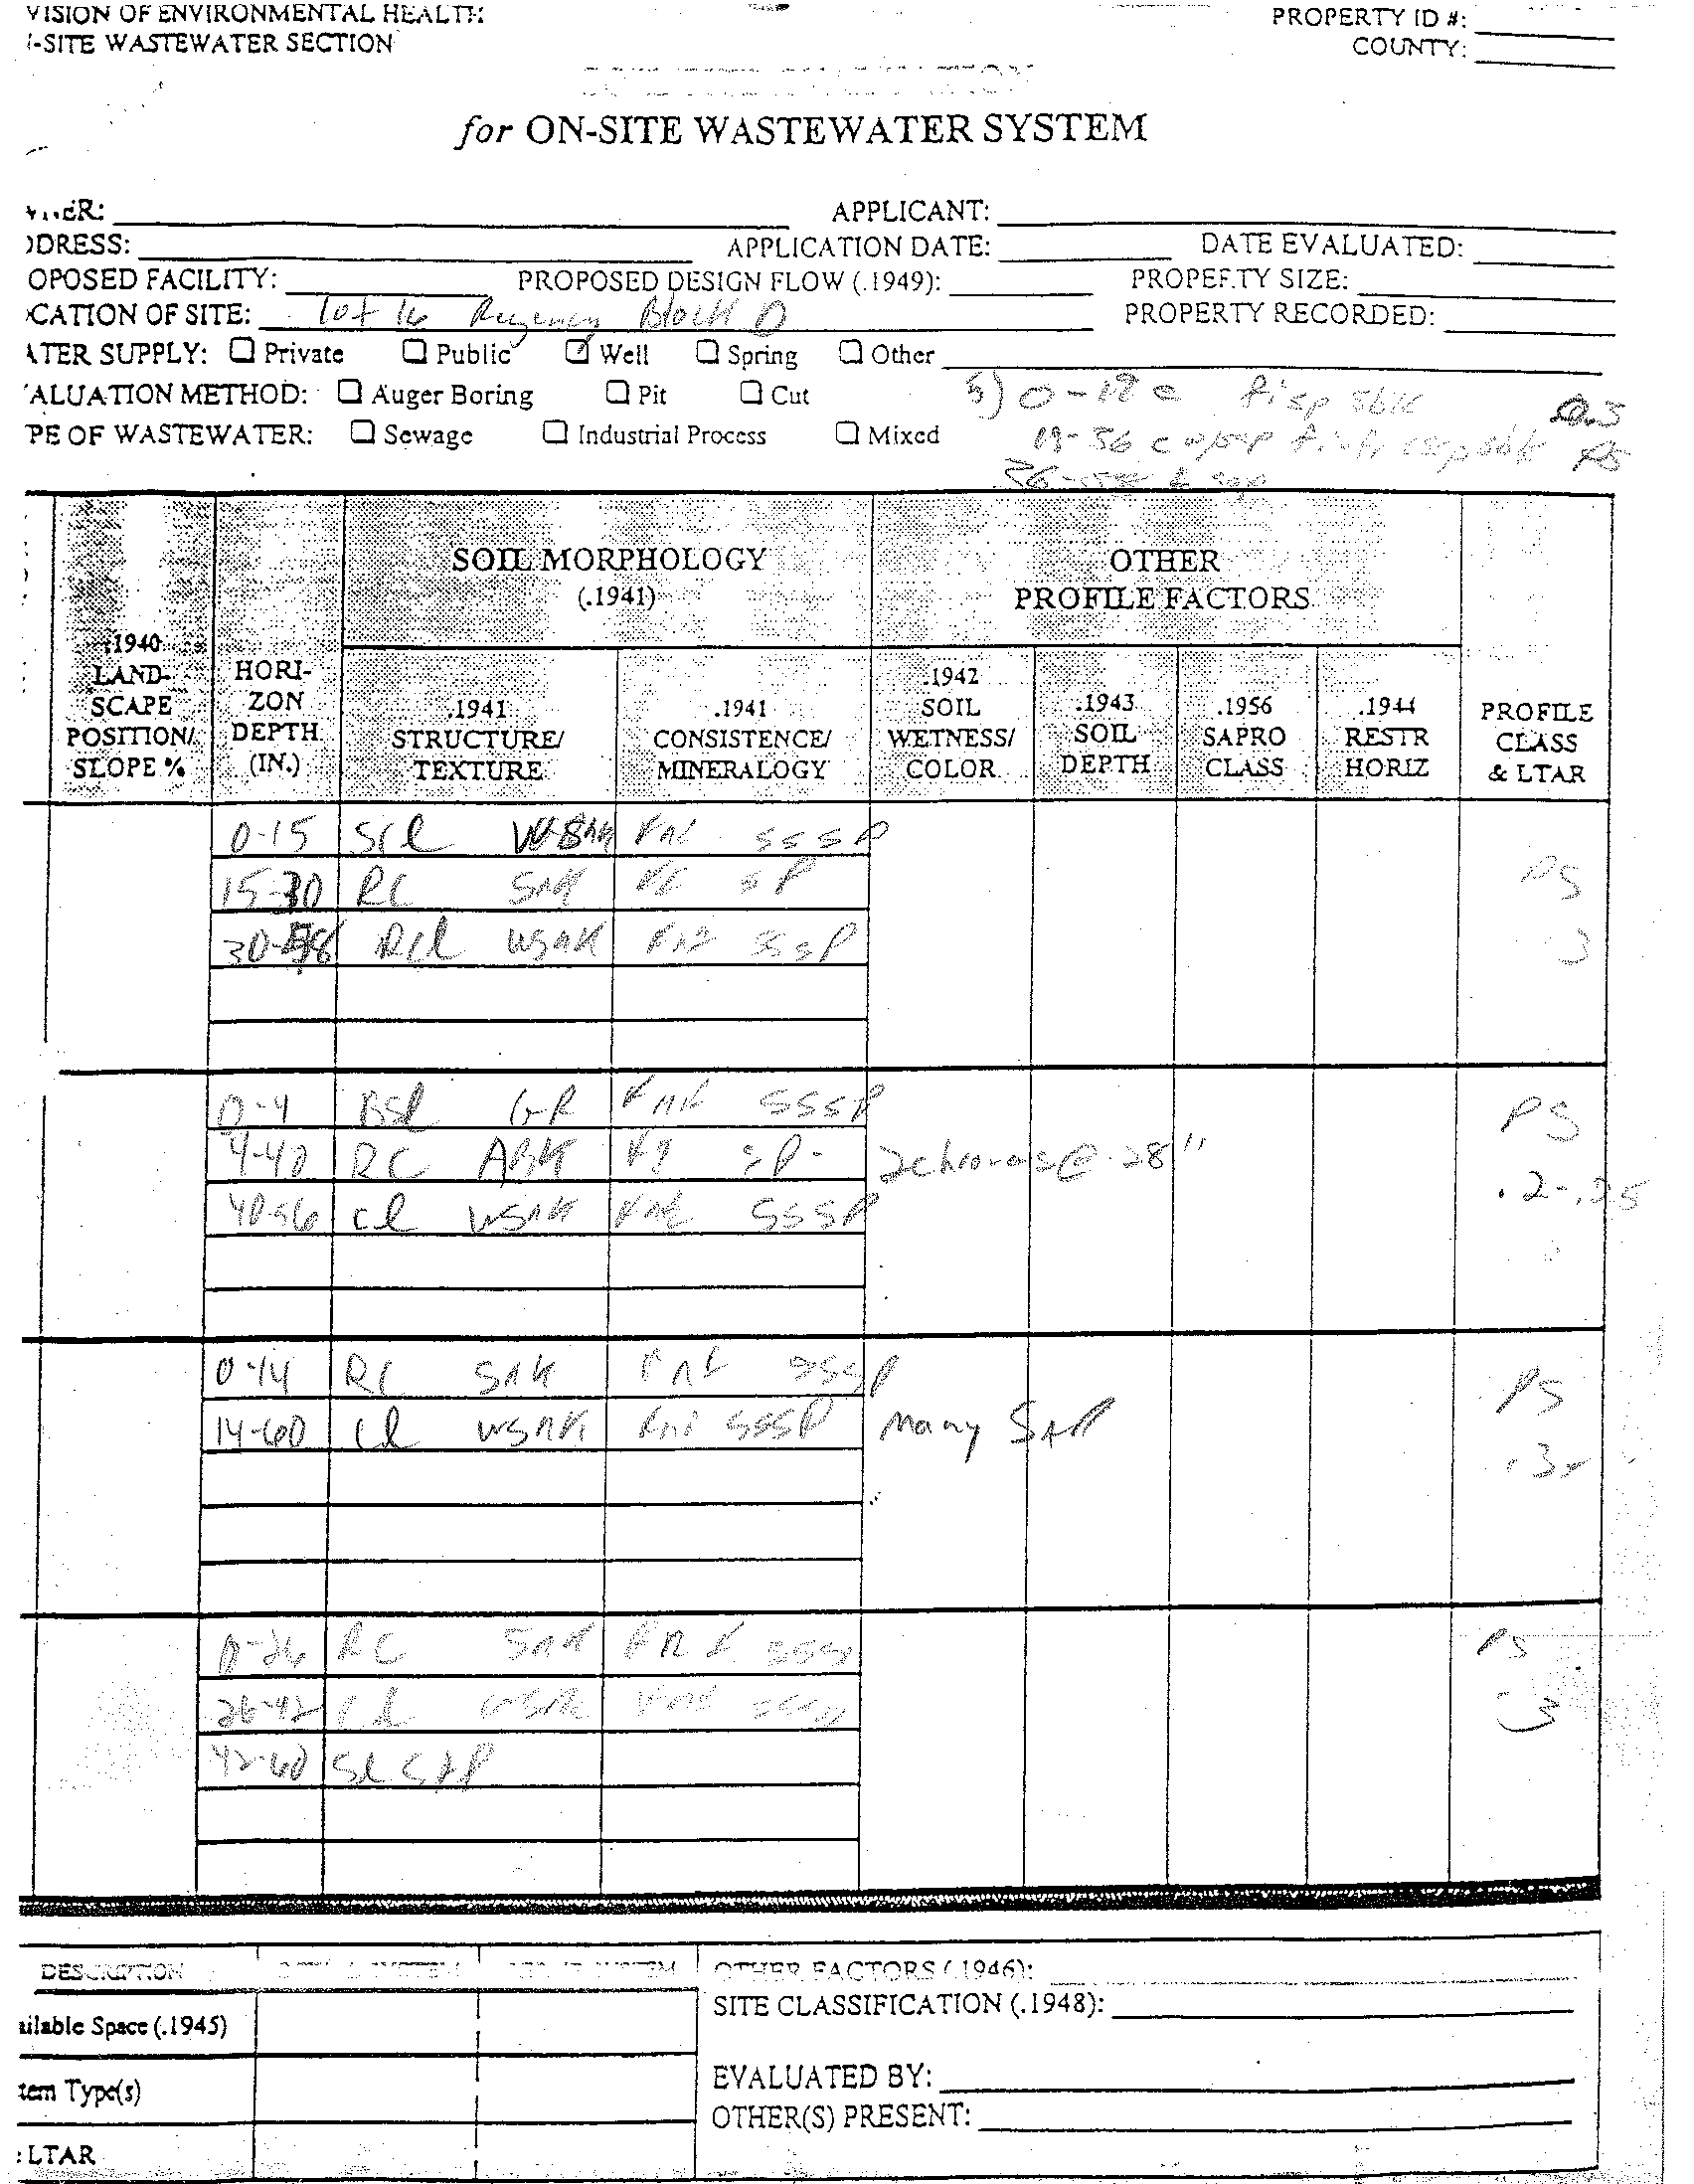 VISION OF ENVIRONMENTAL HEALTH
-SITE WASTEWATER SECTION
PROPERTY ID #:
COUNTY:
for ON-SITE WASTEWATER SYSTEM
ER:
APPLICANT:
DRESS:
APPLICATION DATE:
DATE EVALUATED:
OPOSED FACILITY:
PROPOSED DESIGN FLOW (.1949):
PROPERTY SIZE:
CATION OF SITE: Lot 16 Regency Block D
PROPERTY RECORDED:
ATER SUPPLY: Private Public Well Spring Other
ALUATION METHOD: Auger Boring Pit Cut
PE OF WASTEWATER: Sewage Industrial Process Mixed
5) 0-19 c fi sp sbk
19-36 c
PS
SOIL MORPHOLOGY
(.1941)
OTHER
PROFILE FACTORS
.1940
LAND-
SCAPE
POSITION/
SLOPE %
HORI-
ZON
DEPTH
(IN.)
.1941
STRUCTURE/
TEXTURE
.1941
CONSISTENCE/
MINERALOGY
.1942
SOIL
WETNESS/
COLOR
.1943
SOIL
DEPTH
.1956
SAPRO
CLASS
.1944
RESTR
HORIZ
PROFILE
CLASS
& LTAR
0-15 SCL WSBK SSSP
15-30 RC SBK SP PS
30- RCL WSBK SSSP .3
0-4 BSL GR SSSP PS
4-40 RC ABK SP 2 chromas @ 28"
40-56 CL WSBK SSSP .2-.25
0-14 RC SBK SSSP PS
14-60 CL WSBK SSSP Many SAP
.3
0-26 RC SBK SSSP PS
26-42 CL WSBK SSSP .3
42-60 SL SAP
DESCRIPTION
OTHER FACTORS (.1946):
SITE CLASSIFICATION (.1948):
ailable Space (.1945)
EVALUATED BY:
tem Type(s)
OTHER(S) PRESENT:
LTAR